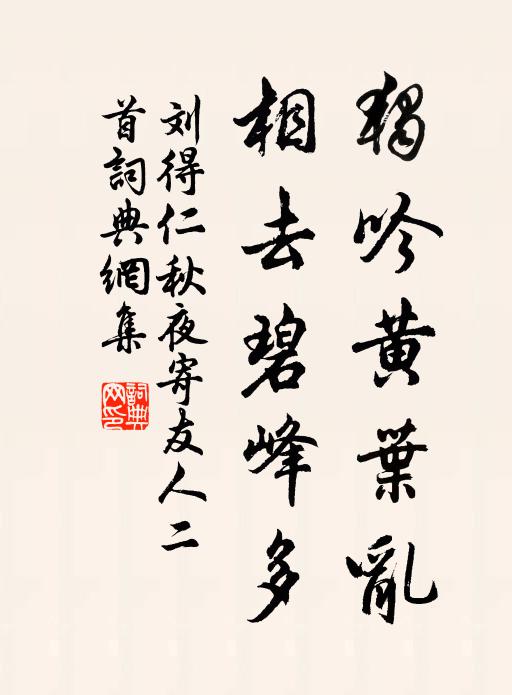 獨吟黃葉亂
相去碧峰多
刘得仁秋夜寄友人二
首詞典網集
詞典網印